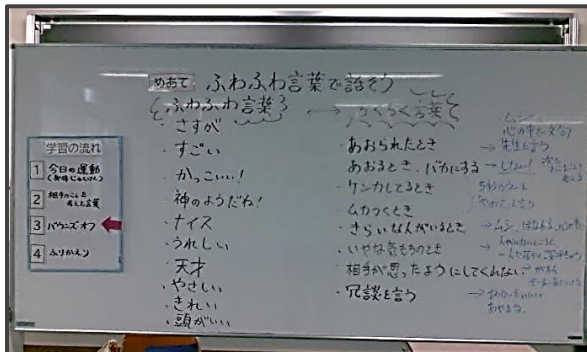 めあて ふわふわ言葉で話そう
ふわふわ言葉
・さすが
・すごい
・かっこいい!
・神のようだね!
・ナイス
・うれしい
・天才
・やさしい
・きれい
・頭がいい
ちくちく言葉
・あおられたとき
・あおるとき、バカにする
・ケンカしてるとき
・ムカつくとき
・きらいな人がいるとき
・いやな気もちのとき
・相手が思ったようにしてくれない
・冗談を言う
・ムシ
心の中で
先生に言う
5秒
→ムシ、はなれる
学習の流れ
1 今日の運動
2 相手のことを考えた言葉
3 バウンズ・オフ
4 ふりかえり